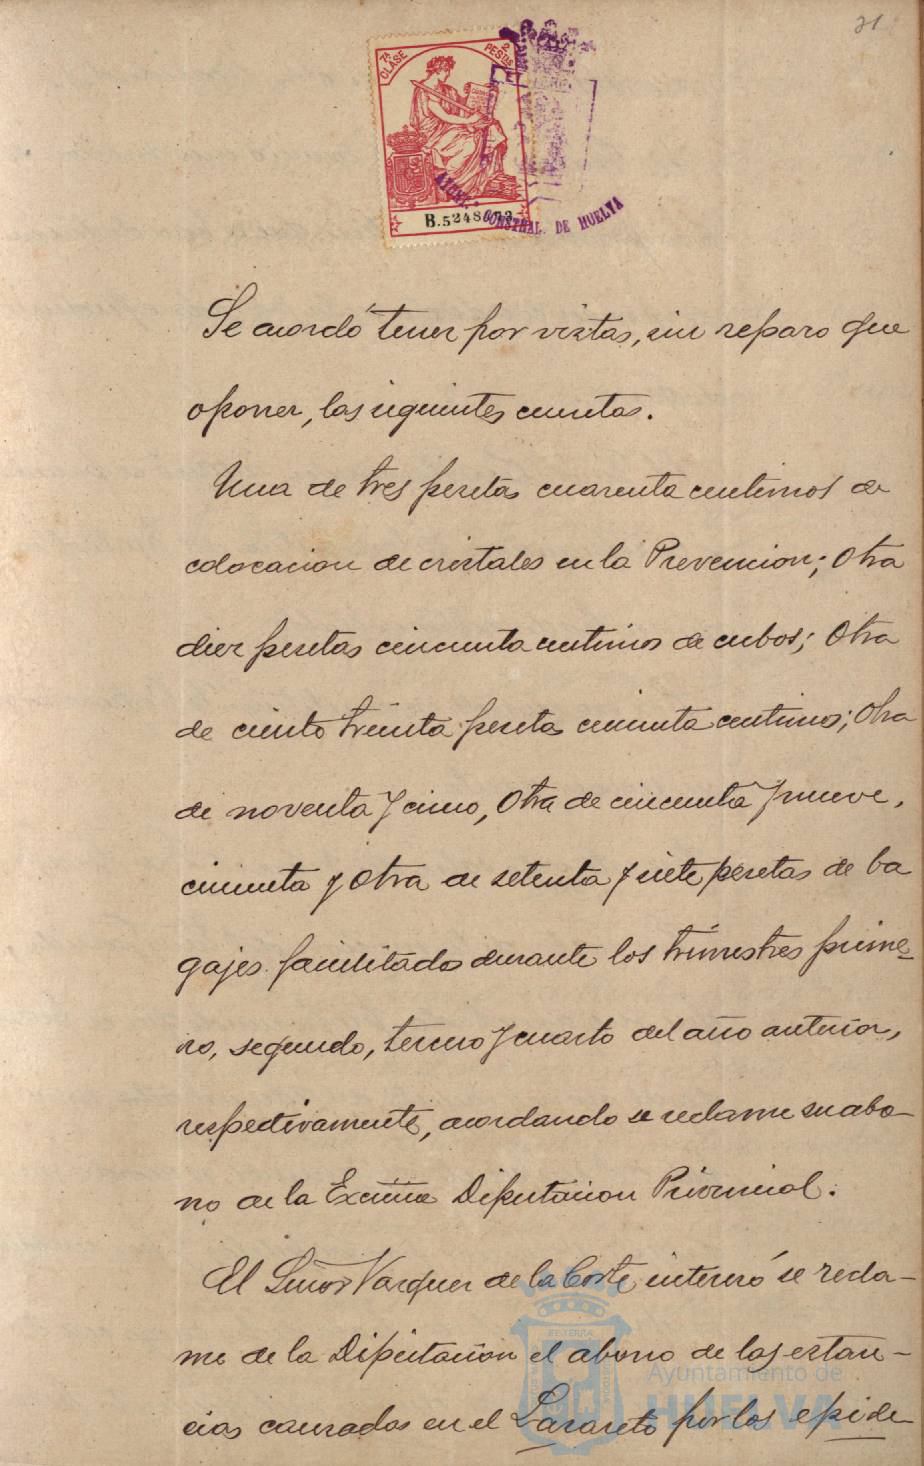 31
7ª CLASE 2 PESTAS
B.5248
AYUNT. CONSTNAL. DE HUELVA
Se acordó tener por vistas, sin reparo que
oponer, las siguientes cuentas.
Una de tres pesetas cuarenta centimos de
colocacion de cristales en la Prevencion; Otra
diez pesetas cincuenta centimos de cubos; Otra
de ciento treinta pesetas cincuenta centimos; Otra
de noventa y cinco, Otra de cincuenta y nueve,
cincuenta y Otra de setenta y siete pesetas de ba
gajes facilitados durante los trimestres prime-
ro, segundo, tercero y cuarto del año anterior,
respectivamente, acordando se reclame su abo-
no de la Excma Diputacion Provincial.
El Señor Vazquez de la Corte interesó se recla-
me de la Diputacion el abono de las estan-
cias causadas en el Lazareto por los epide-
Ayuntamiento de
HUELVA